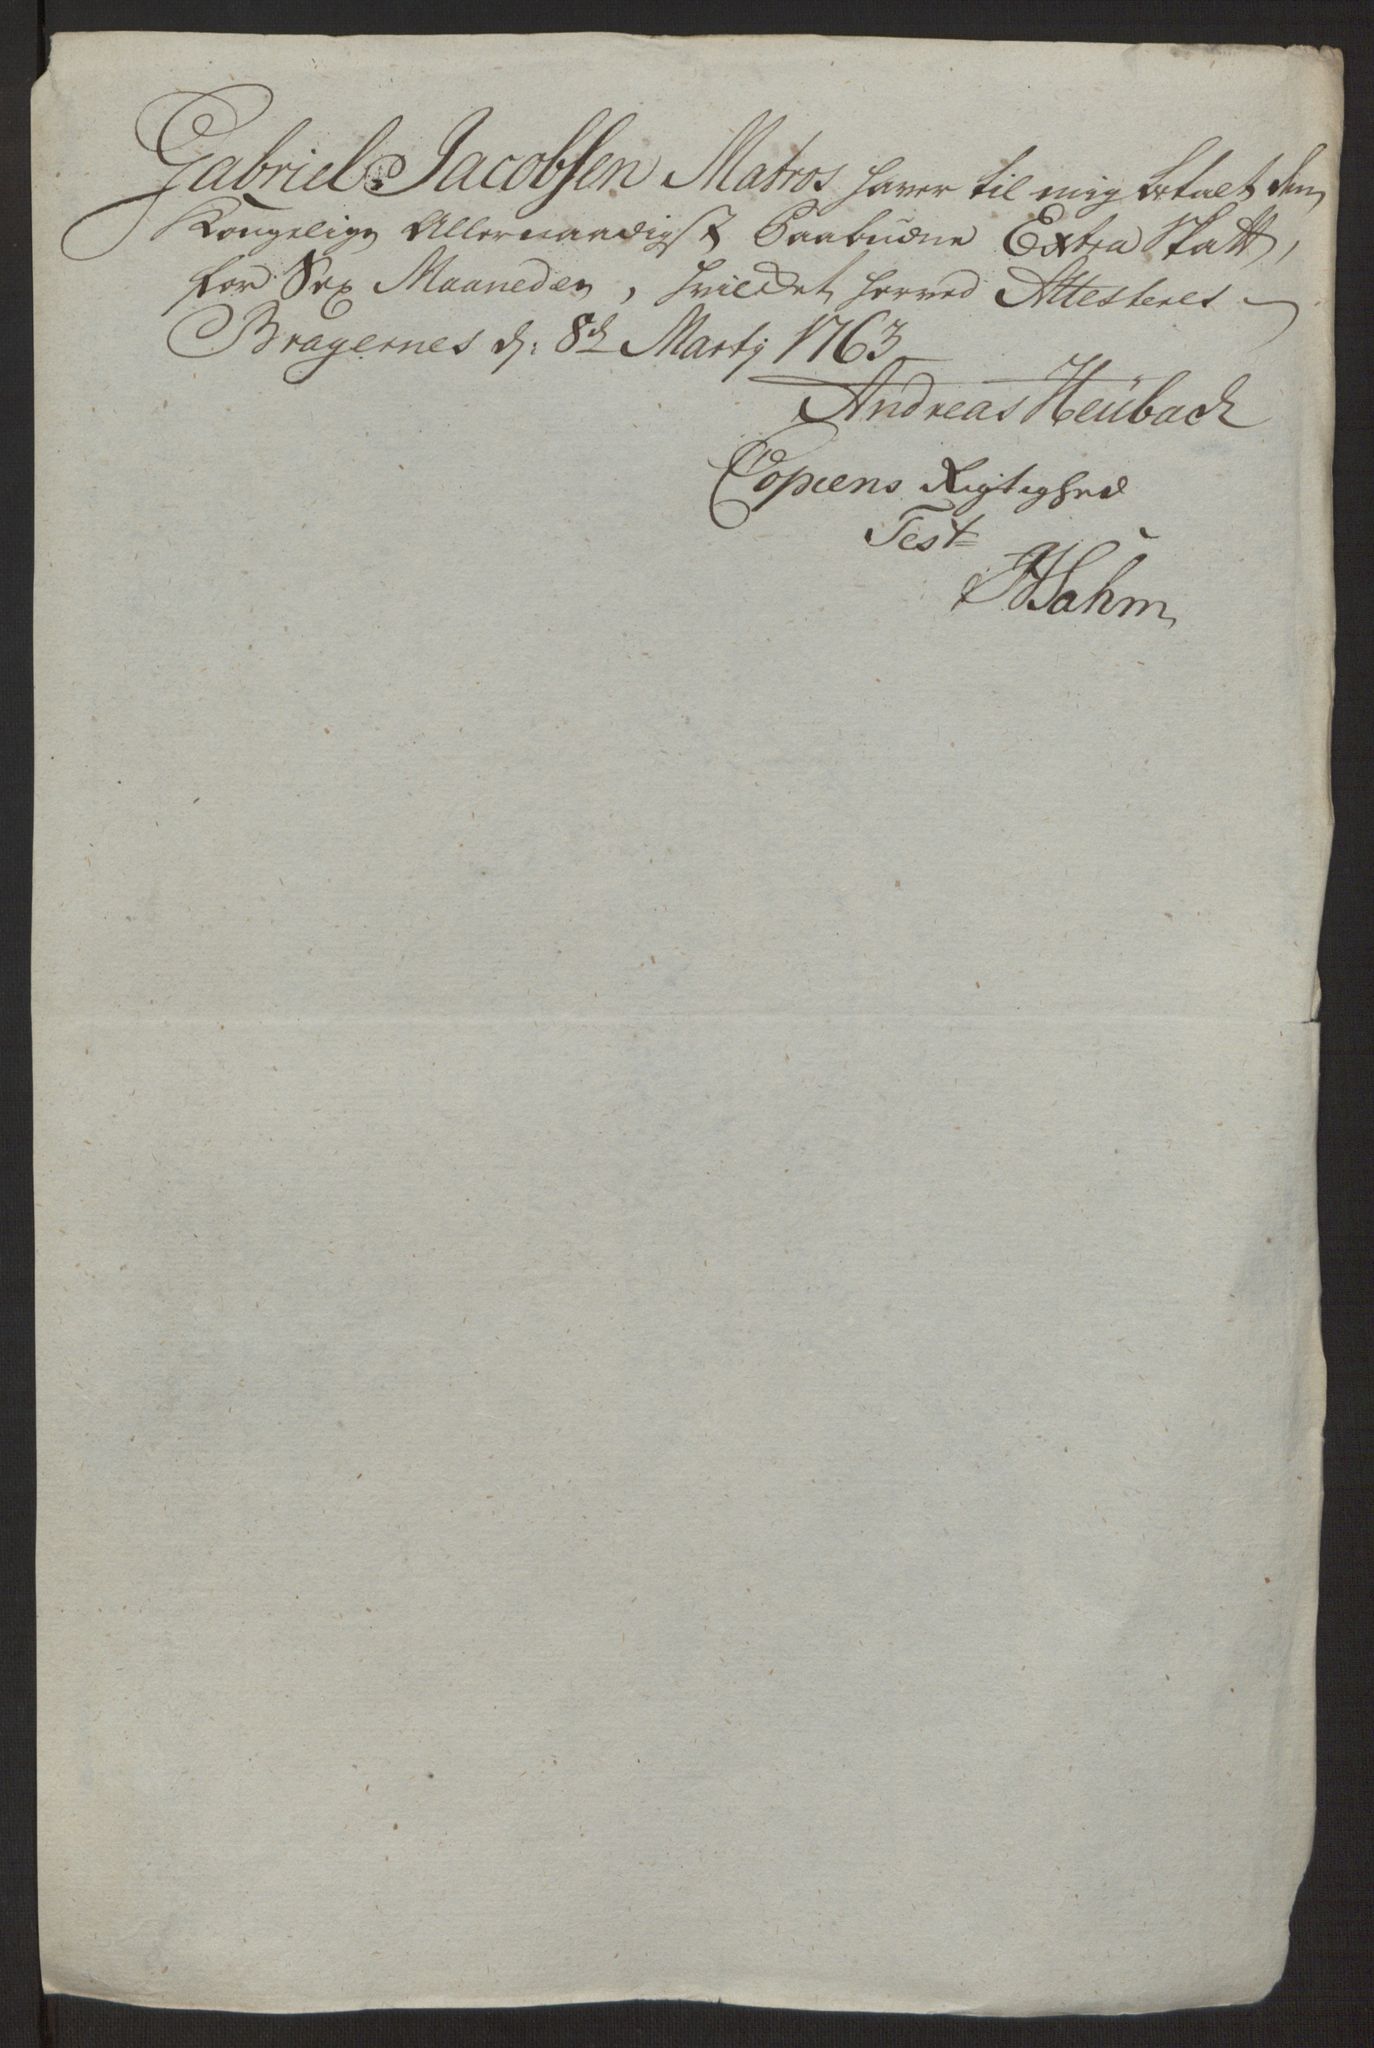 Gabriel Jacobsen Matros haver til mig betalt den
Kongelige Allernaadigst Paabudne Extra Skatt,
for Sex Maaneder, hvilcket herved Attesteres
Bragernes d: 8d Martj 1763
Andreas Heüback
Copiens Rigtighed
Test